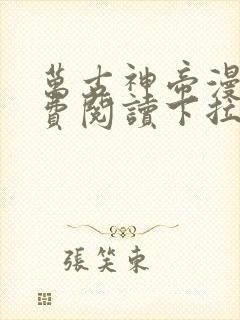 萬古神帝漫
費閱讀下拉
張笑東